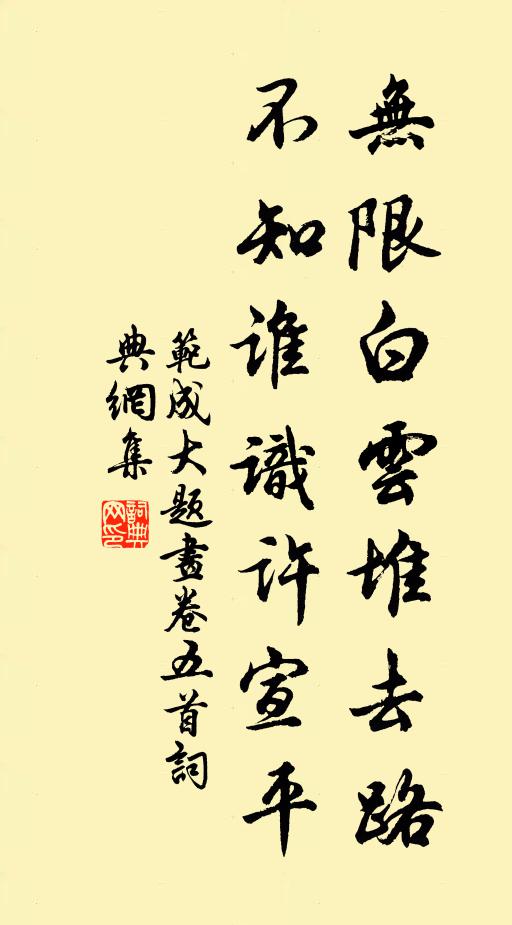 無限白雲堆去路
不知誰識許宣平
範成大題畫卷五首詞
典網集
詞典
网印